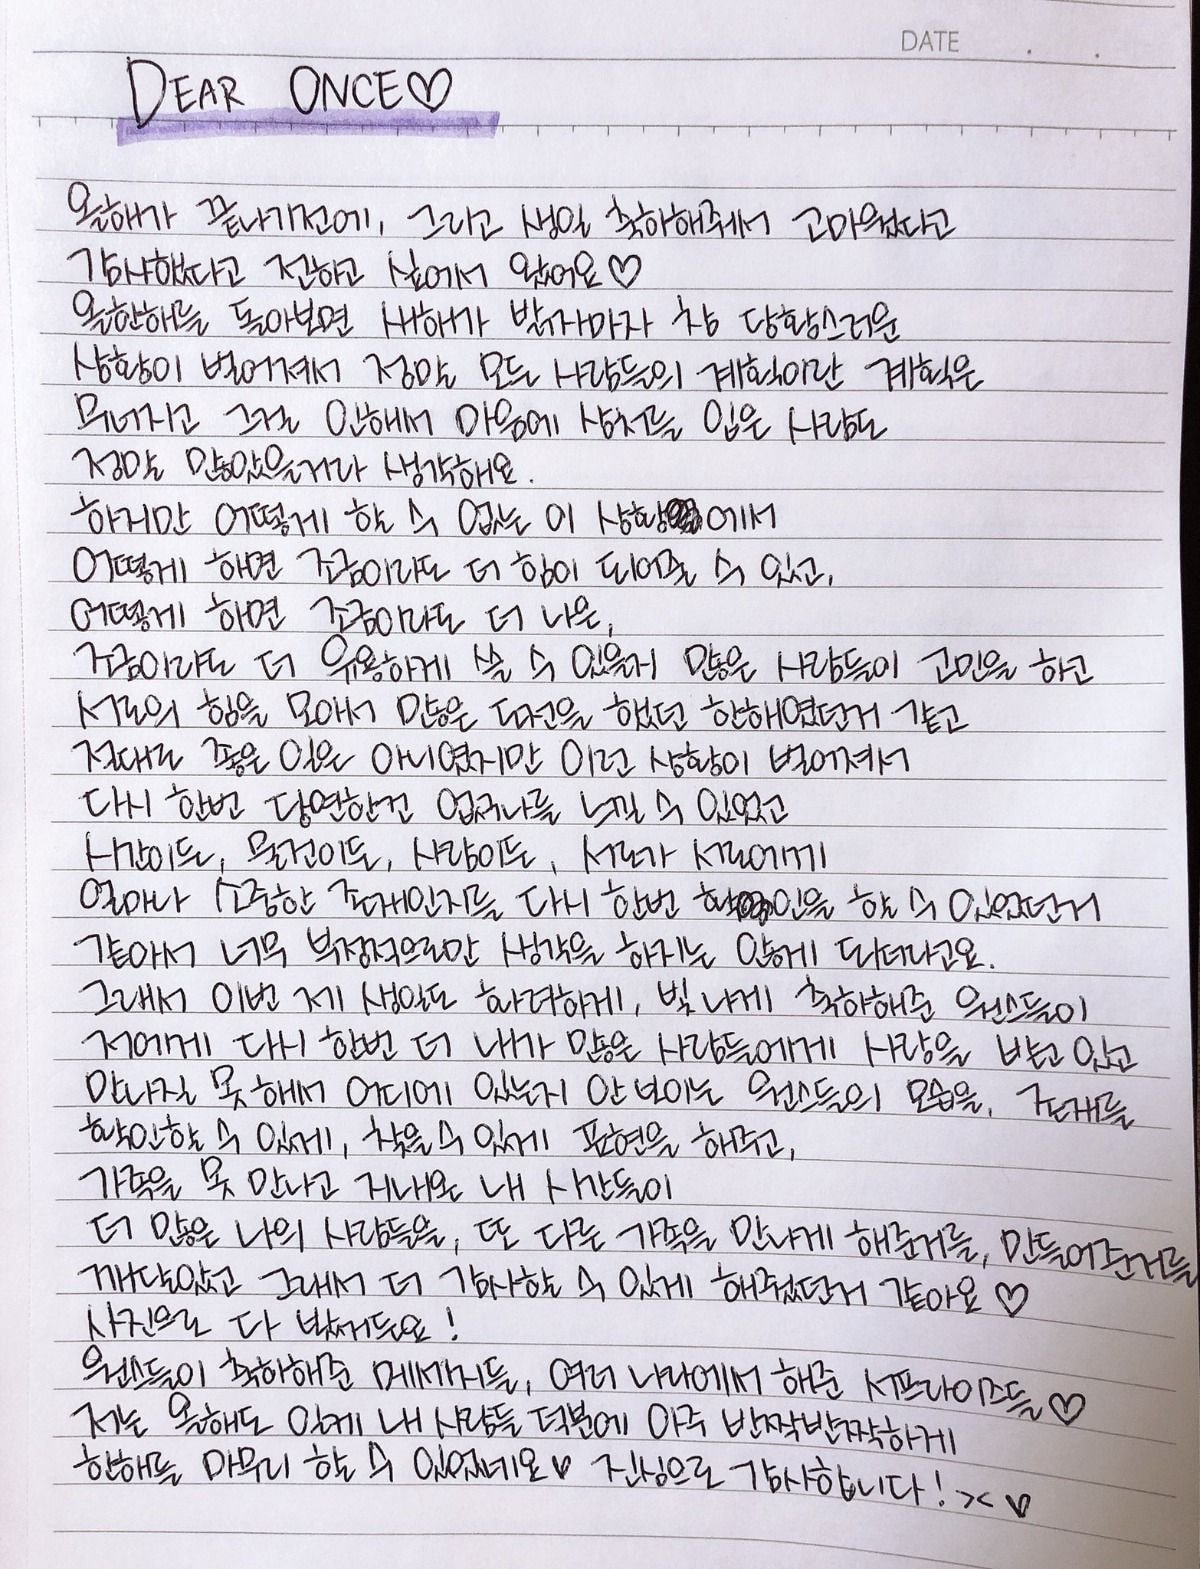 DATE . .
DEAR ONCE♡
올해가 끝나기전에, 그리고 생일 축하해줘서 고마웠다고
감사했다고 전하고 싶어서 왔어요♡
올한해를 돌아보면 새해가 밝자마자 참 당황스러운
상황이 벌어져서 정말 모든 사람들의 계획이란 계획은
무너지고 그걸 인해서 마음에 상처를 입은 사람도
정말 많았을거라 생각해요.
하지만 어떻게 할 수 없는 이 상황에서
어떻게 하면 조금이라도 더 힘이 되어줄 수 있고,
어떻게 하면 조금이라도 더 나은,
조금이라도 더 유용하게 쓸 수 있을지 많은 사람들이 고민을 하고
서로의 힘을 모아서 많은 도전을 했던 한해였던거 같고
절대로 좋은 일은 아니였지만 이런 상황이 벌어져서
다시 한번 당연한건 없구나를 느낄 수 있었고
시간이든, 물건이든, 사람이든, 서로가 서로에게
얼마나 소중한 존재인지를 다시 한번 확인을 할 수 있었던거
같아서 너무 부정적으로만 생각을 하지는 않게 되더라고요.
그래서 이번 제 생일도 화려하게, 빛나게 축하해준 원스들이
저에게 다시 한번 더 내가 많은 사람들에게 사랑을 받고 있고
만나질 못해서 어디에 있는지 안 보이는 원스들의 모습을, 존재를
확인할 수 있게, 찾을수 있게 표현을 해주고,
가족을 못 만나고 지내온 내 시간들이
더 많은 나의 사람들을, 또 다른 가족을 만나게 해준거를, 만들어준거를
깨달았고 그래서 더 감사할 수 있게 해줬던거 같아요♡
사진으로 다 봤거든요!
원스들이 축하해준 메세지들, 여러 나라에서 해준 서프라이즈들♡
저는 올해도 이렇게 내 사람들 덕분에 아주 반짝반짝하게
한해를 마무리 할 수 있었네요♥ 진심으로 감사합니다! >< ♥